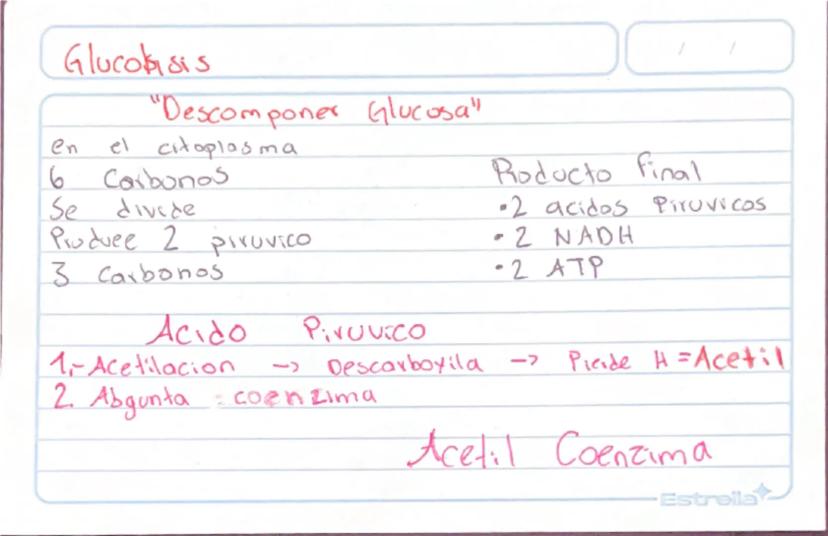 Glucolisis
/ /
"Descomponer Glucosa"
en el citoplasma
6 Carbonos
Se divide
Produce 2 piruvico
3 carbonos
Producto final
•2 acidos Piruvicos
•2 NADH
•2 ATP
Acido Piruvico
1,-Acetilacion -> Descarboxila -> Pierde H = Acetil
2. Abgunta : coenzima
Acetil Coenzima
Estrella